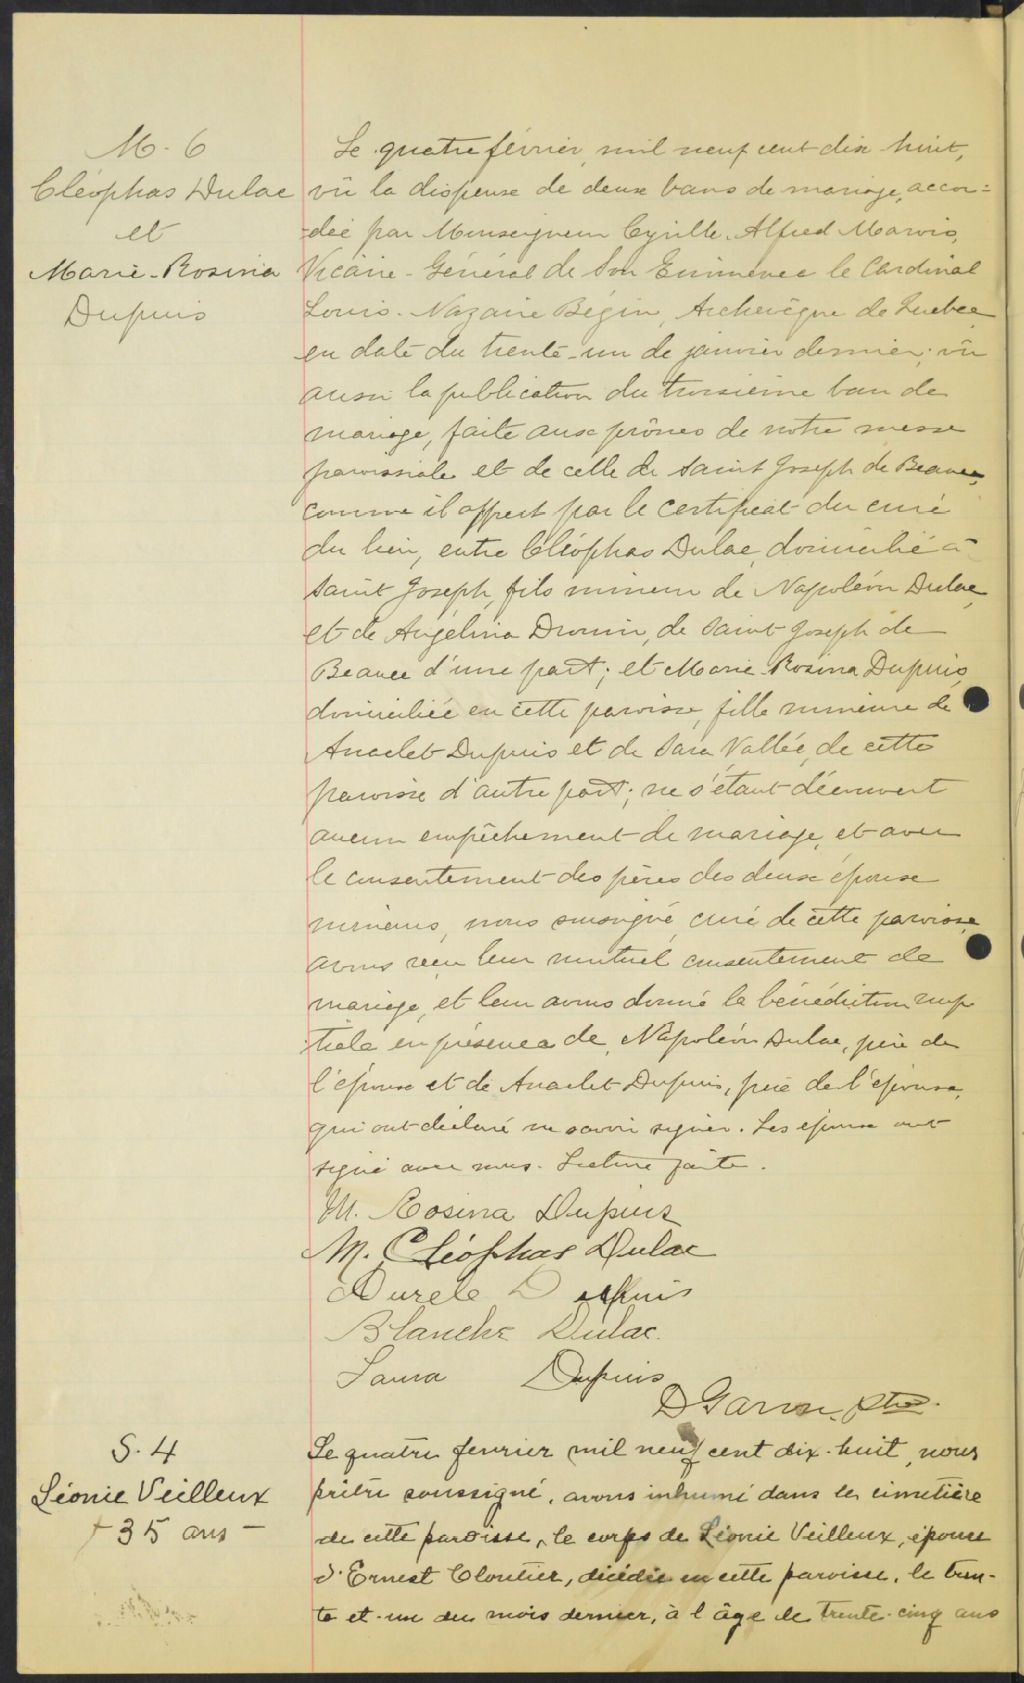 M. 6
Cléophas Dulac
et
Marie-Rosina
Dupuis
Le quatre février, mil neuf cent dix huit,
vû la dispense de deux bans de mariage, accor=
-dée par Monseigneur Cyrille-Alfred Marois,
Vicaire-Général de Son Eminence le Cardinal
Louis-Nazaire Bégin, Archevêque de Québec
en date du trente-un de janvier dernier; vû
aussi la publication du troisième ban de
mariage, faite aux prônes de notre messe
paroissiale et de celle de Saint Joseph de Beauce,
comme il appert par le certificat du curé
du lieu, entre Cléophas Dulac, domicilié à
Saint Joseph, fils mineur de Napoléon Dulac,
et de Angélina Drouin, de Saint-Joseph de
Beauce d'une part; et Marie-Rosina Dupuis,
domiciliée en cette paroisse, fille mineure de
Anaclet Dupuis et de Sara Vallée, de cette
paroisse d'autre part; ne s'étant découvert
aucun empêchement de mariage, et avec
le consentement des pères des deux époux
mineurs, nous soussigné, curé de cette paroisse,
avons reçu leur mutuel consentement de
mariage, et leur avons donné la bénédiction nup
tiale en présence de Napoléon Dulac, père de
l'époux et de Anaclet Dupuis, père de l'épouse,
qui ont déclaré ne savoir signer. Les époux ont
signé avec nous. Lecture faite.
M. Rosina Dupuis
M. Cléophas Dulac
Aurele Dupuis
Blanche Dulac.
Laura Dupuis
D Garon, Ptre.
S. 4
Léonie Veilleux
+ 35 ans -
Le quatre fevrier mil neuf cent dix-huit, nous
prêtre soussigné, avons inhumé dans le cimetière
de cette paroisse, le corps de Léonie Veilleux, épouse
d'Ernest Cloutier, décédée en cette paroisse, le tren-
te et-un du mois dernier, à l'âge de trente-cinq ans